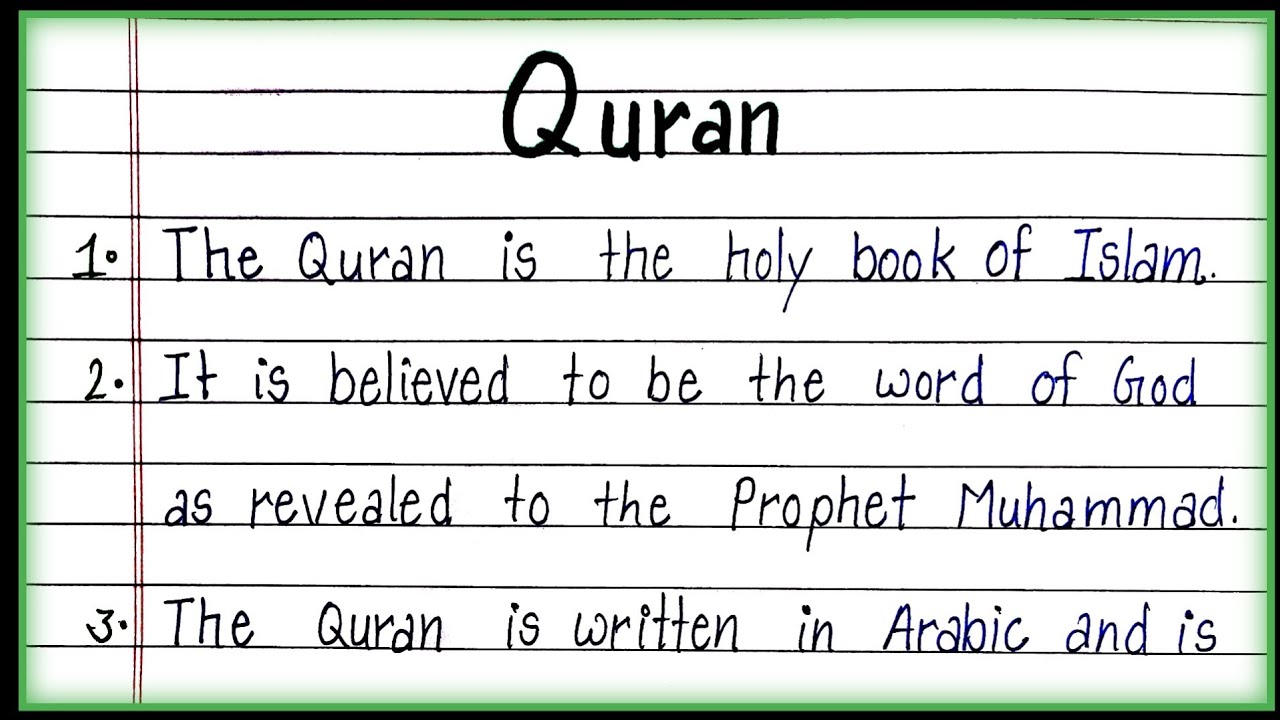 Quran
1. The Quran is the holy book of Islam.
2. It is believed to be the word of God
as revealed to the Prophet Muhammad.
3. The Quran is written in Arabic and is